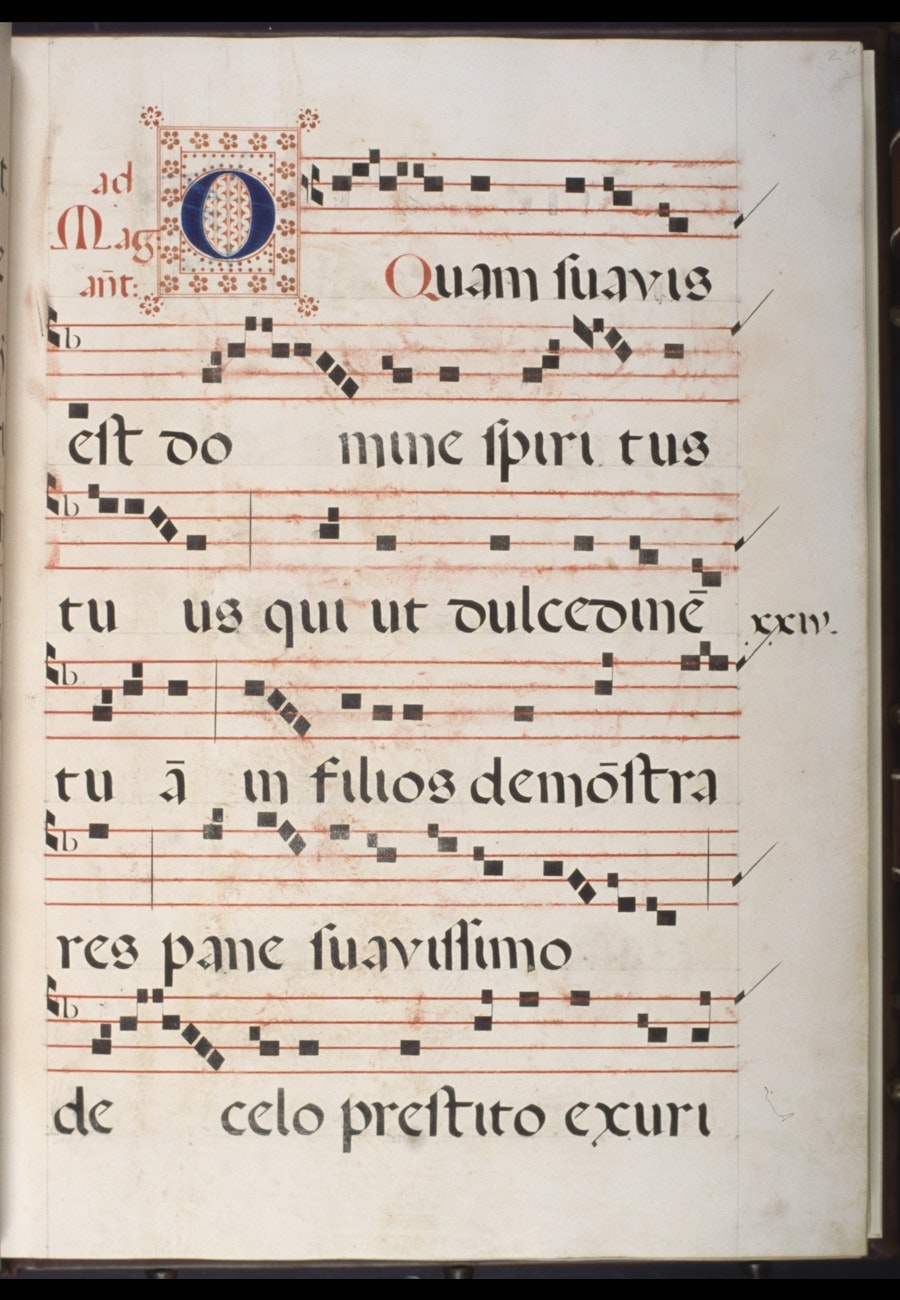 24
ad
Mag
an̄t:
O Quam ſuavis
eſt do mine ſpiri tus
tu us qui ut dulcedinē
xxiv.
tu ā in filios demōſtra
res pane ſuaviſſimo
de celo preſtito exuri